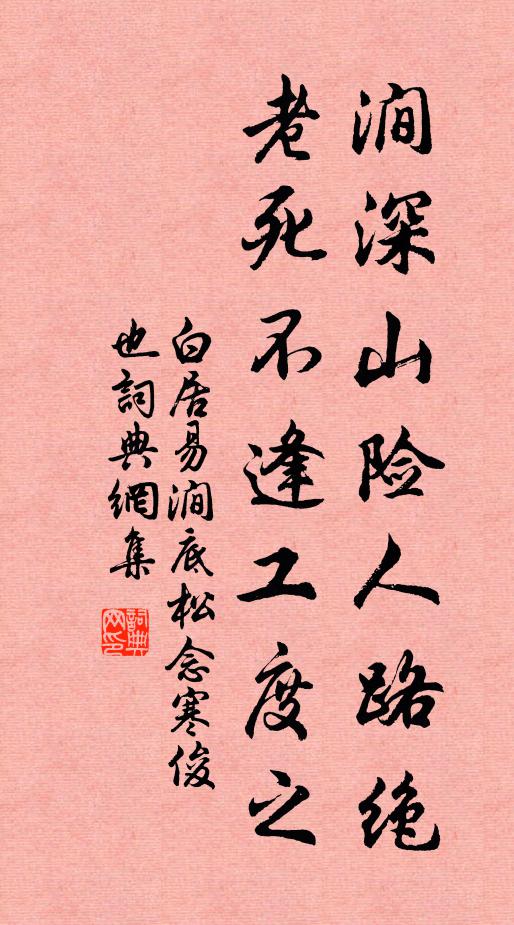 涧深山险人路绝
老死不逢工度之
白居易涧底松念寒俊
也詞典網集
詞典网印